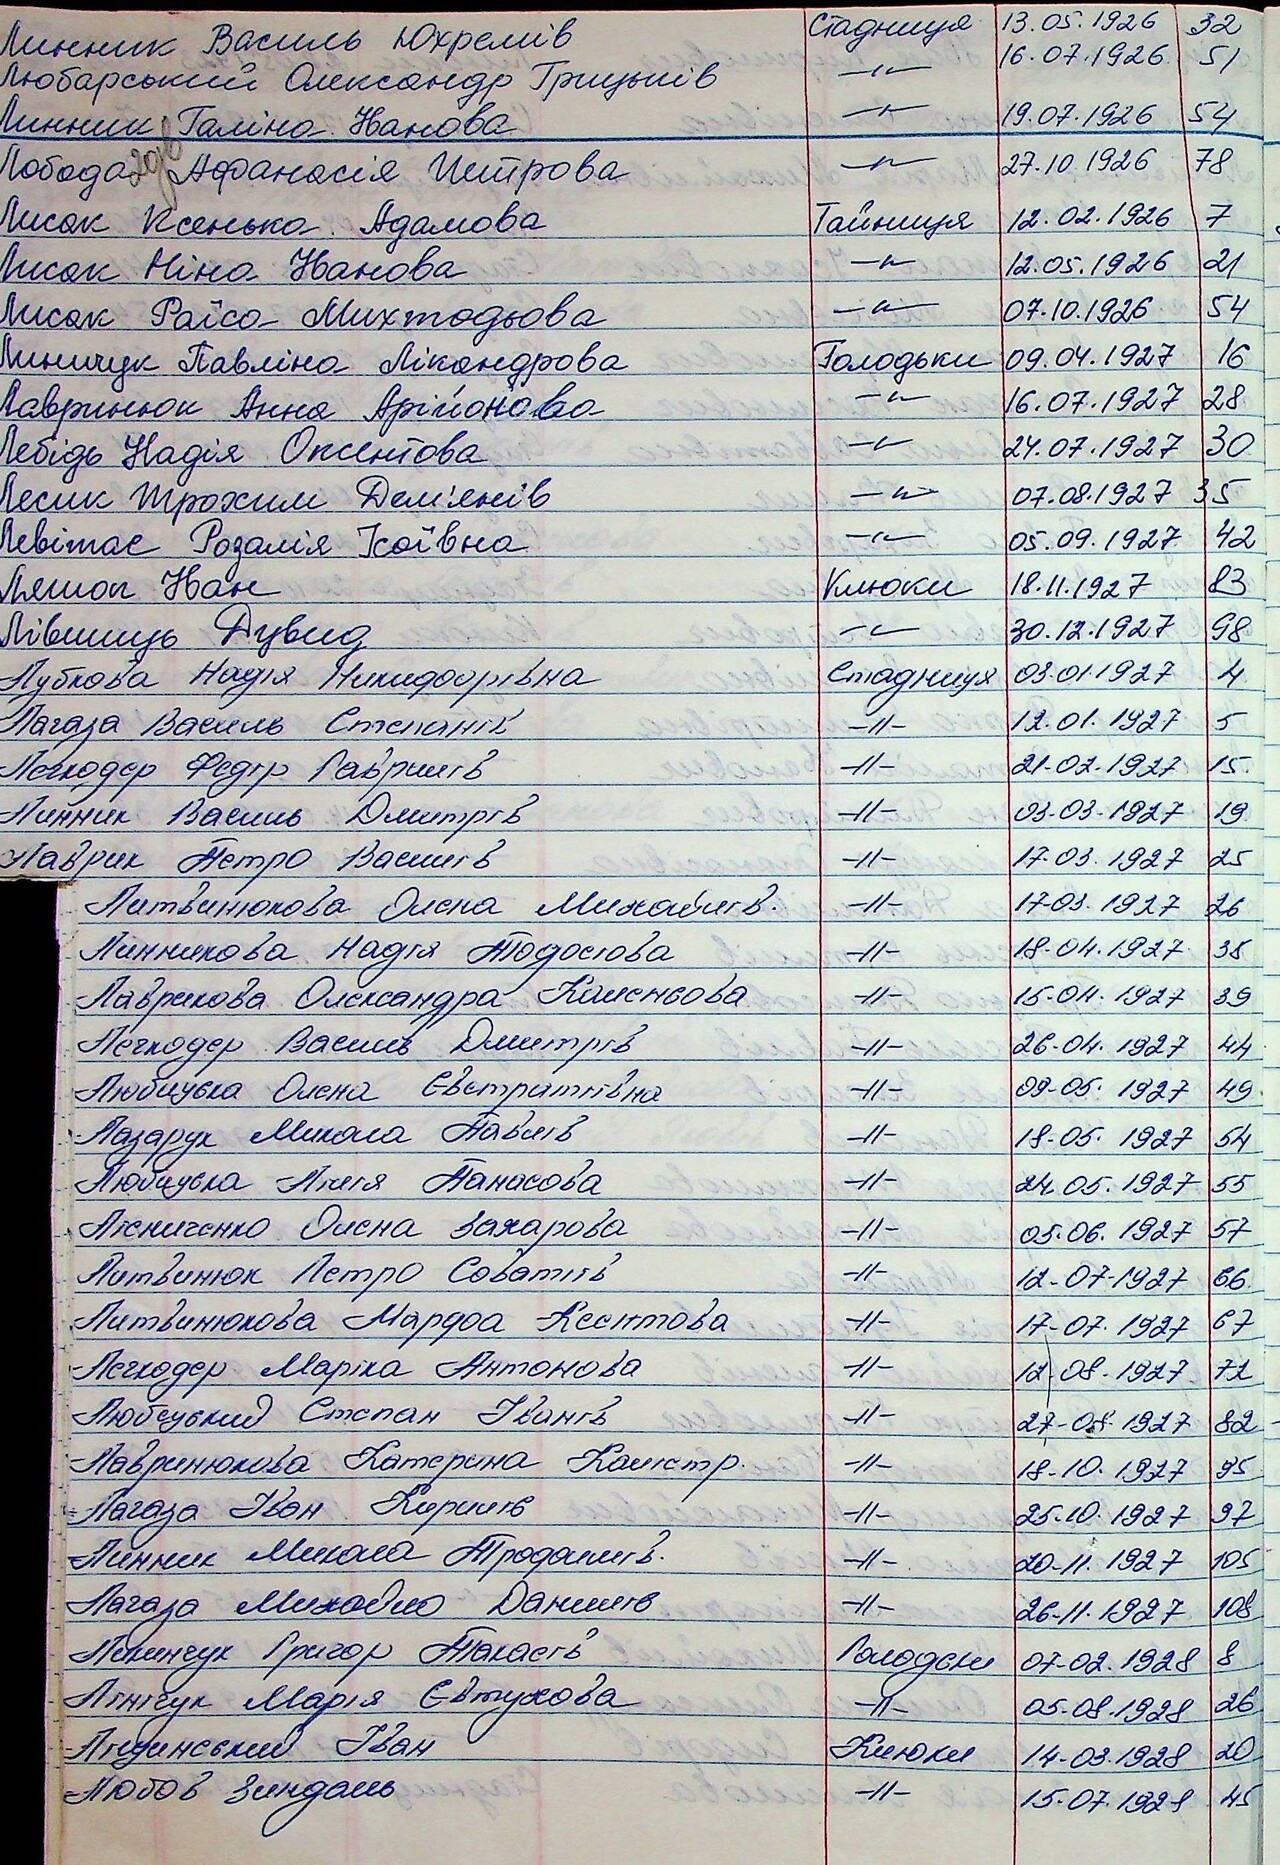 Линник Василь Юхремів Стадниця 13.05.1926 32
Любарський Олександр Грицьків -"- 16.07.1926 51
Линник Галіна Иванова -"- 19.07.1926 54
Лобода Афанасія Петрова -"- 27.10.1926 78
Лисак Ксенька Адамова Тайниця 12.02.1926 7
Лисак Ніна Иванова -"- 12.05.1926 21
Лисак Раїса Михтодьова -"- 07.10.1926 54
Линичук Павліна Лікандрова Голодьки 09.04.1927 16
Лавринюк Анна Арійонова -"- 16.07.1927 28
Лебідь Надія Оксентова -"- 24.07.1927 30
Лесик Трохим Дем'янів -"- 07.08.1927 35
Левітас Розалія Ісаївна -"- 05.09.1927 42
Ляшок Иван Клюки 18.11.1927 83
Лівшиць Дувид -"- 30.12.1927 98
Лубкова Надія Никифорівна Стадниця 03.01.1927 4
Лагаза Василь Степанів -"- 12.01.1927 5
Легкодер Федір Гаврилів -"- 21.02.1927 15
Линник Василь Дмитрів -"- 03.03.1927 19
Лаврик Петро Василів -"- 17.03.1927 25
Литвинюкова Олена Михайлів. -"- 17.03.1927 26
Линникова Надія Тодосіова -"- 18.04.1927 38
Лаврикова Олександра Каленьова -"- 15.04.1927 39
Легкодер Василь Дмитрів -"- 26.04.1927 44
Любицька Олена Євстратіївна -"- 09.05.1927 49
Лазарук Микола Павлів -"- 18.05.1927 54
Любицька Лілія Панасова -"- 24.05.1927 55
Лісниченко Олена Захарова -"- 05.06.1927 57
Литвинюк Петро Соватіїв -"- 12.07.1927 66
Литвинюкова Марфа -"- 17.07.1927 67
Легкодер Марійка Антонова -"- 12.08.1927 72
Любецький Степан Іванів -"- 27.08.1927 82
Лавринюкова Катерина Калістр. -"- 18.10.1927 95
Лагаза Іван Кирилів -"- 25.10.1927 97
Линник Микола Трофимів. -"- 20.11.1927 105
Лагаза Михайло Данилів -"- 26.11.1927 108
Лукинчук Григор Голодьки 07.02.1928 8
Лінічук Марія Євтухова -"- 05.08.1928 26
Лидинський Іван Клюки 14.03.1928 20
Любов Зиндель -"- 15.07.1928 45